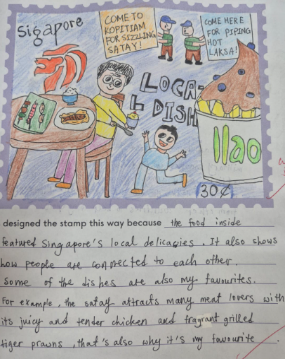 Singapore
COME TO
KOPITIAM
FOR SIZZLING
SATAY!
COME HERE
FOR PIPING
HOT
LAKSA!
LOCA-
L DISH
llao
30¢
designed the stamp this way because the food inside
featured Singapore's local delicacies. It also shows
how people are connected to each other.
Some of the dishes are also my favourites.
For example, the satay attracts many meat lovers with
its juicy and tender chicken and fragrant grilled
tiger prawns, that's also why it's my favourite